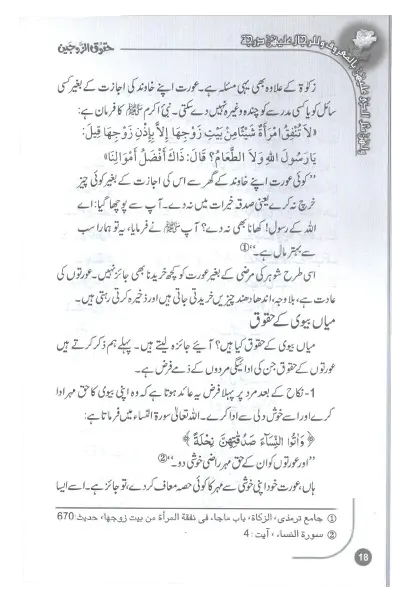 حقوق الزوجین
زکوٰۃ کے علاوہ بھی یہی مسئلہ ہے۔ عورت اپنے خاوند کی اجازت کے بغیر کسی
سائل کو یا کسی مدرسے کو چندہ وغیرہ نہیں دے سکتی۔ نبیٔ اکرم ﷺ کا فرمان ہے:
«لَا تُنْفِقِ امْرَأَةٌ شَيْئًا مِنْ بَيْتِ زَوْجِهَا إِلَّا بِإِذْنِ زَوْجِهَا قِيلَ:
يَارَسُولَ اللهِ وَلَا الطَّعَامُ؟ قَالَ: ذَاكَ أَفْضَلُ أَمْوَالِنَا»
’’کوئی عورت اپنے خاوند کے گھر سے اس کی اجازت کے بغیر کوئی چیز
خرچ نہ کرے یعنی صدقہ خیرات میں نہ دے۔ آپ سے پوچھا گیا: اے
اللہ کے رسول! کھانا بھی نہ دے؟ آپ ﷺ نے فرمایا، یہ تو ہمارا سب
سے بہتر مال ہے۔‘‘①
اسی طرح شوہر کی مرضی کے بغیر عورت کو کچھ خریدنا بھی جائز نہیں۔ عورتوں کی
عادت ہے، بلاوجہ، اندھا دھند چیزیں خریدتی جاتی ہیں اور ذخیرہ کرتی رہتی ہیں۔
میاں بیوی کے حقوق
میاں بیوی کے حقوق کیا ہیں؟ آیئے جائزہ لیتے ہیں۔ پہلے ہم ذکر کرتے ہیں
عورتوں کے حقوق جن کی ادائیگی مردوں کے ذمے فرض ہے۔
1- نکاح کے بعد مرد پر پہلا فرض یہ عائد ہوتا ہے کہ وہ اپنی بیوی کا حق مہر ادا
کرے اور اسے خوش دلی سے ادا کرے۔ اللہ تعالیٰ سورۃ النساء میں فرماتا ہے:
﴿ وَاٰتُوا النِّسَآءَ صَدُقٰتِهِنَّ نِحْلَةً ﴾
’’اور عورتوں کو ان کے حق مہر راضی خوشی دو۔‘‘②
ہاں، عورت خود اپنی خوشی سے مہر کا کوئی حصہ معاف کر دے، تو جائز ہے۔ اسے ایسا
① جامع ترمذی، الزکاۃ، باب ماجاء فی نفقة المرأة من بیت زوجھا، حدیث: 670
② سورۃ النساء، آیت: 4
18